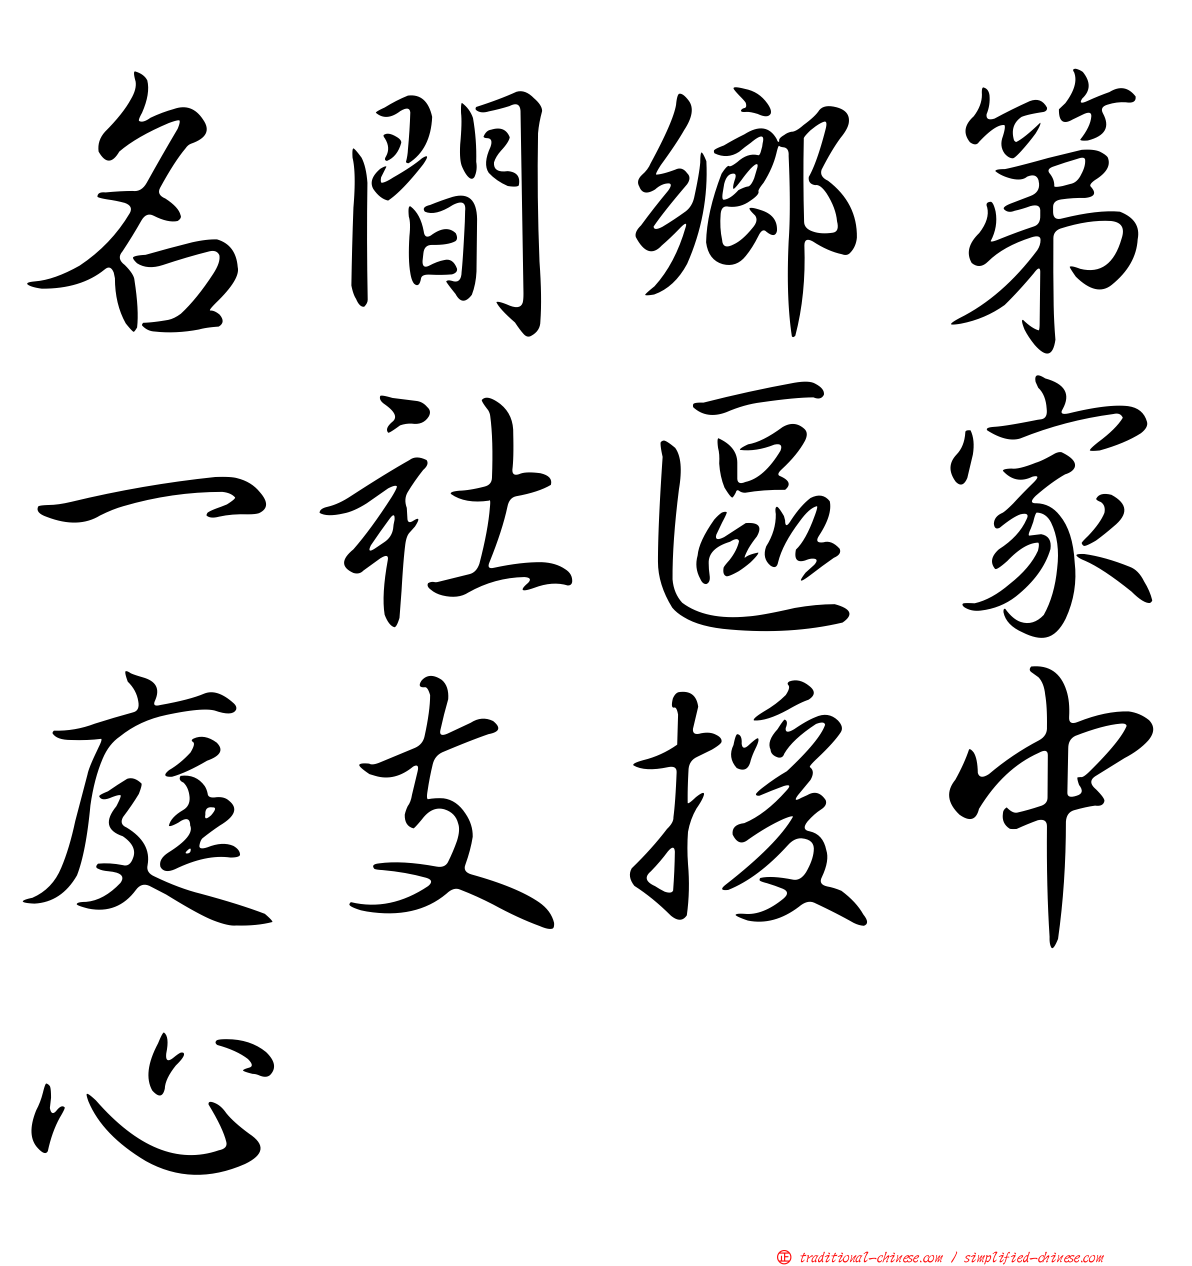 名間鄉第
一社區家
庭支援中
心
正 traditional-chinese.com / simplified-chinese.com